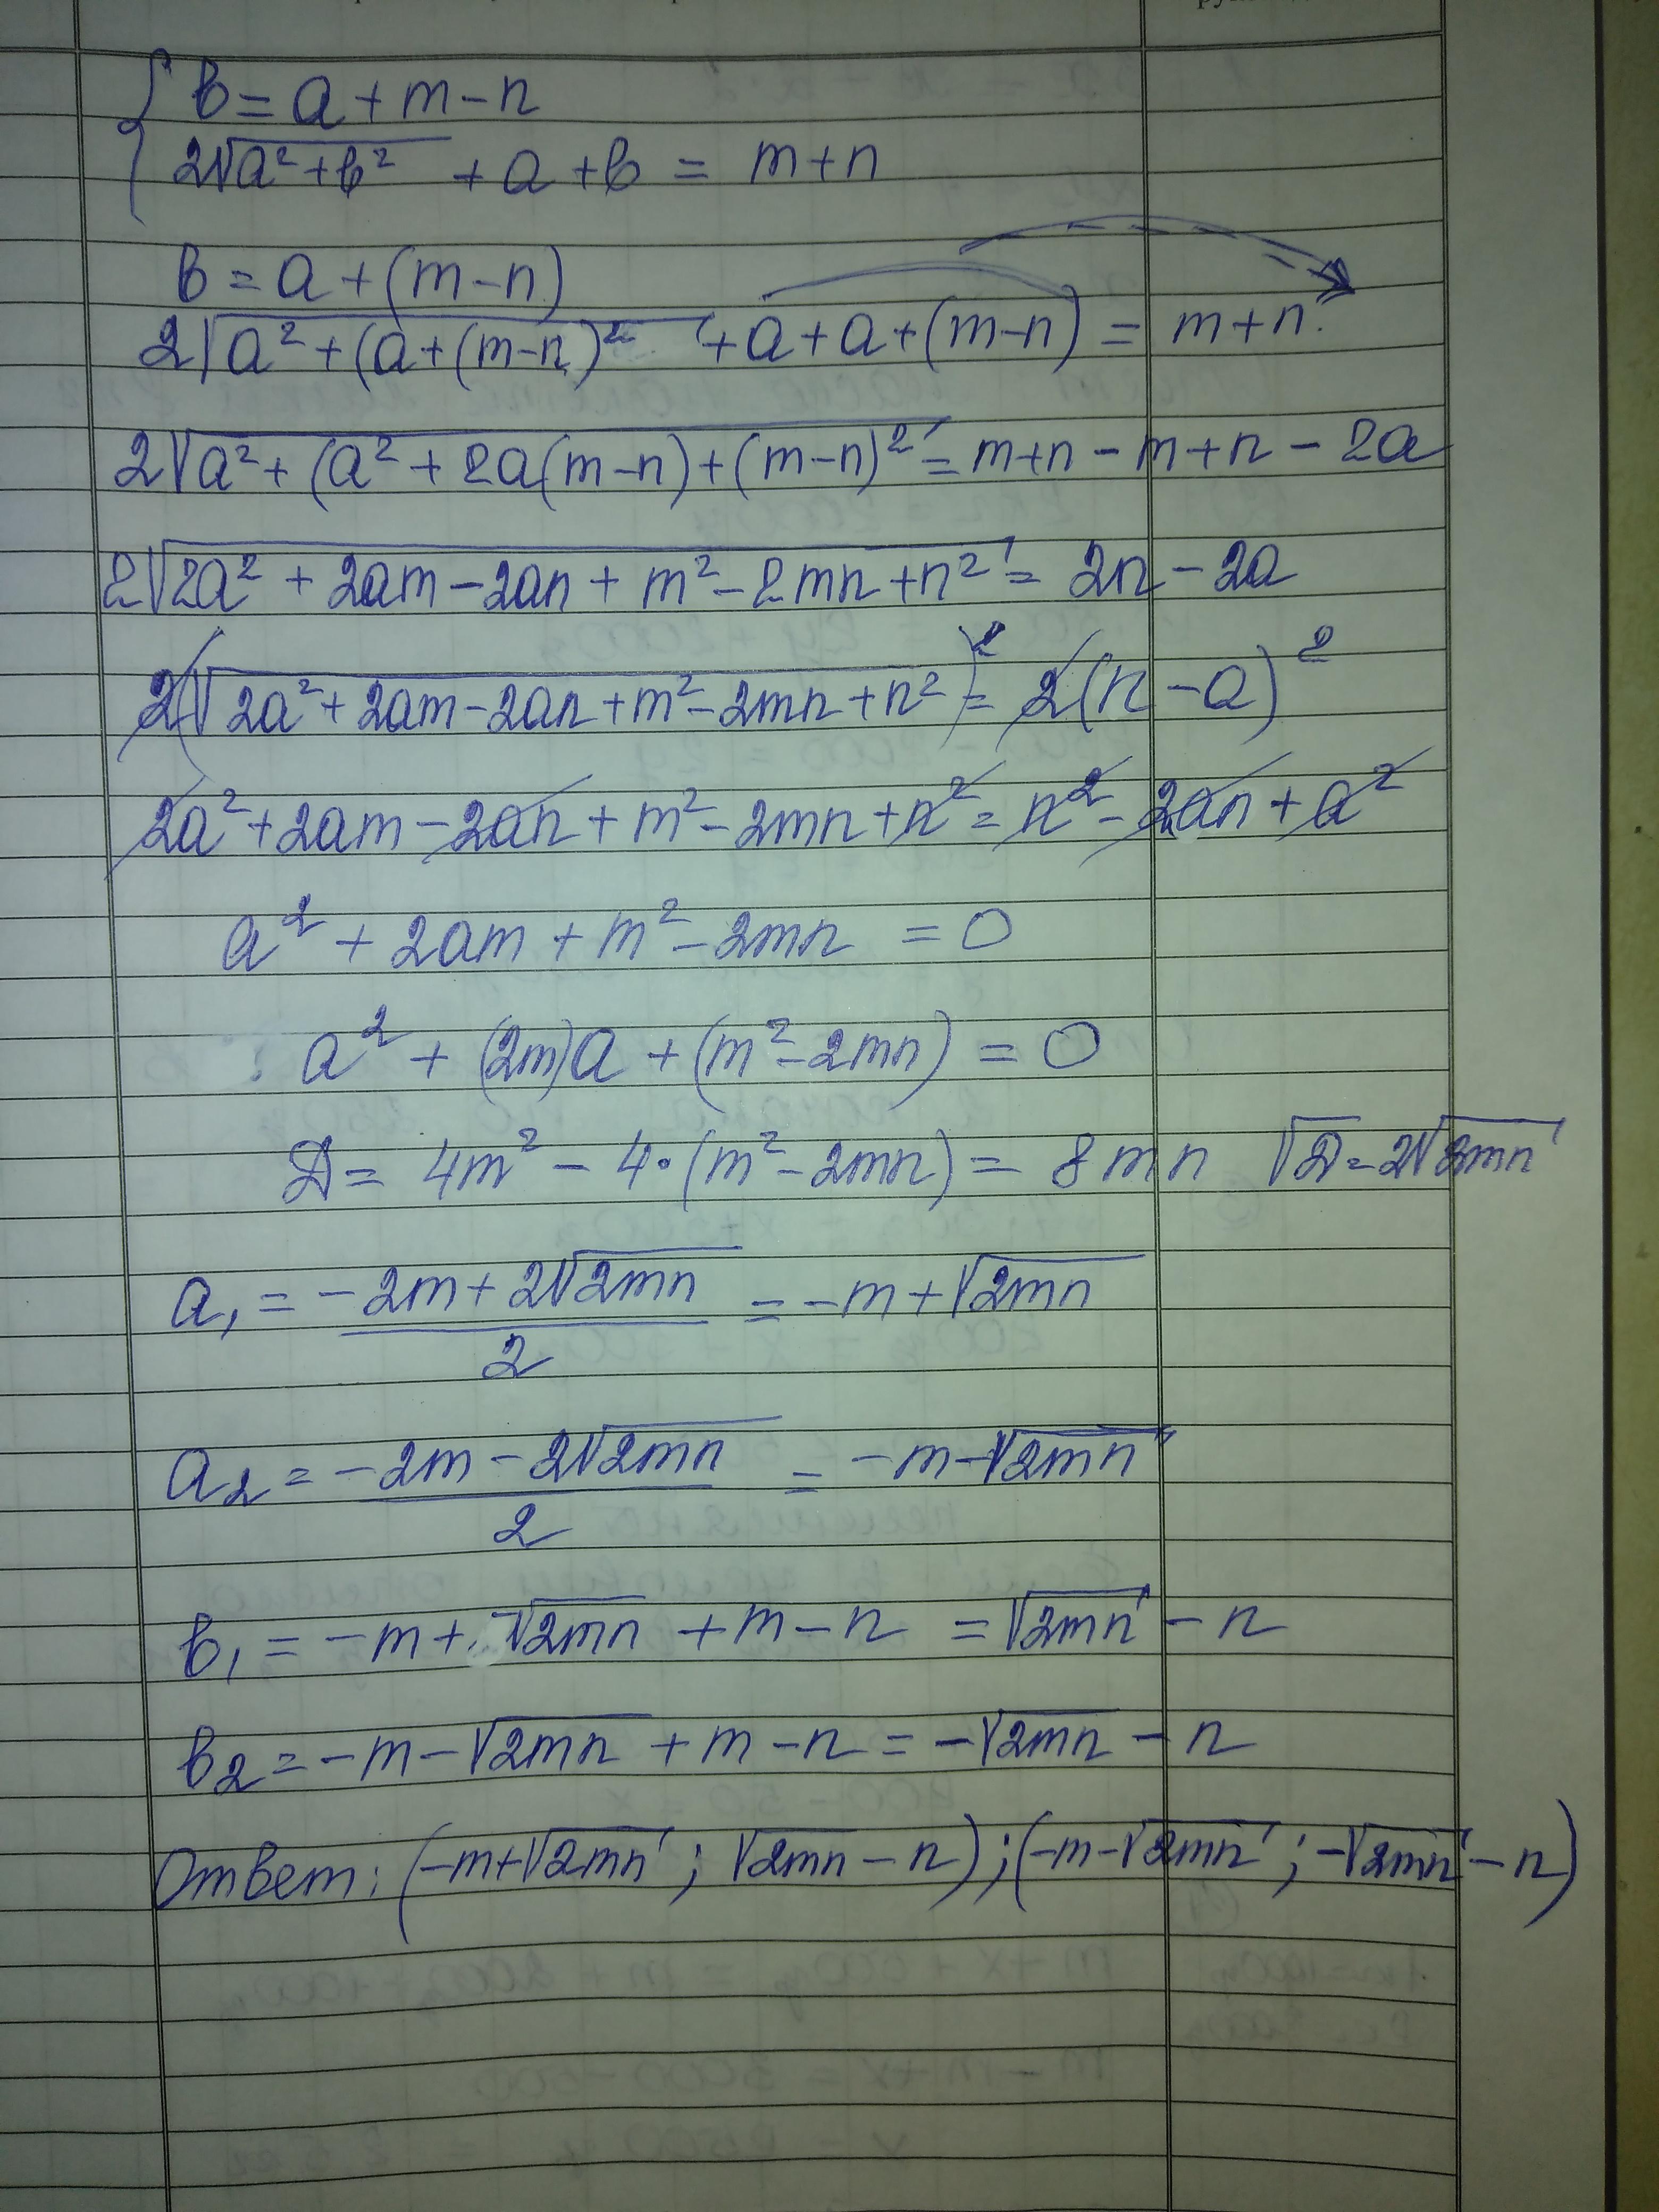 { b = a + m − n
2√(a² + b²) + a + b = m + n
b = a + (m − n)
2√(a² + (a + (m − n)²) + a + a + (m − n) = m + n
2√(a² + (a² + 2a(m − n) + (m − n)²) = m + n − m + n − 2a
2√(2a² + 2am − 2an + m² − 2mn + n²) = 2n − 2a
2(√(2a² + 2am − 2an + m² − 2mn + n²))² = 2(n − a)²
2a² + 2am − 2an + m² − 2mn + n² = n² − 2an + a²
a² + 2am + m² − 2mn = 0
a² + (2m)a + (m² − 2mn) = 0
D = 4m² − 4·(m² − 2mn) = 8mn √D = 2√(2mn)
a₁ = (−2m + 2√(2mn))/2 = −m + √(2mn)
a₂ = (−2m − 2√(2mn))/2 = −m − √(2mn)
b₁ = −m + √(2mn) + m − n = √(2mn) − n
b₂ = −m − √(2mn) + m − n = −√(2mn) − n
Ответ: (−m + √(2mn) ; √(2mn) − n) ; (−m − √(2mn) ; −√(2mn) − n)